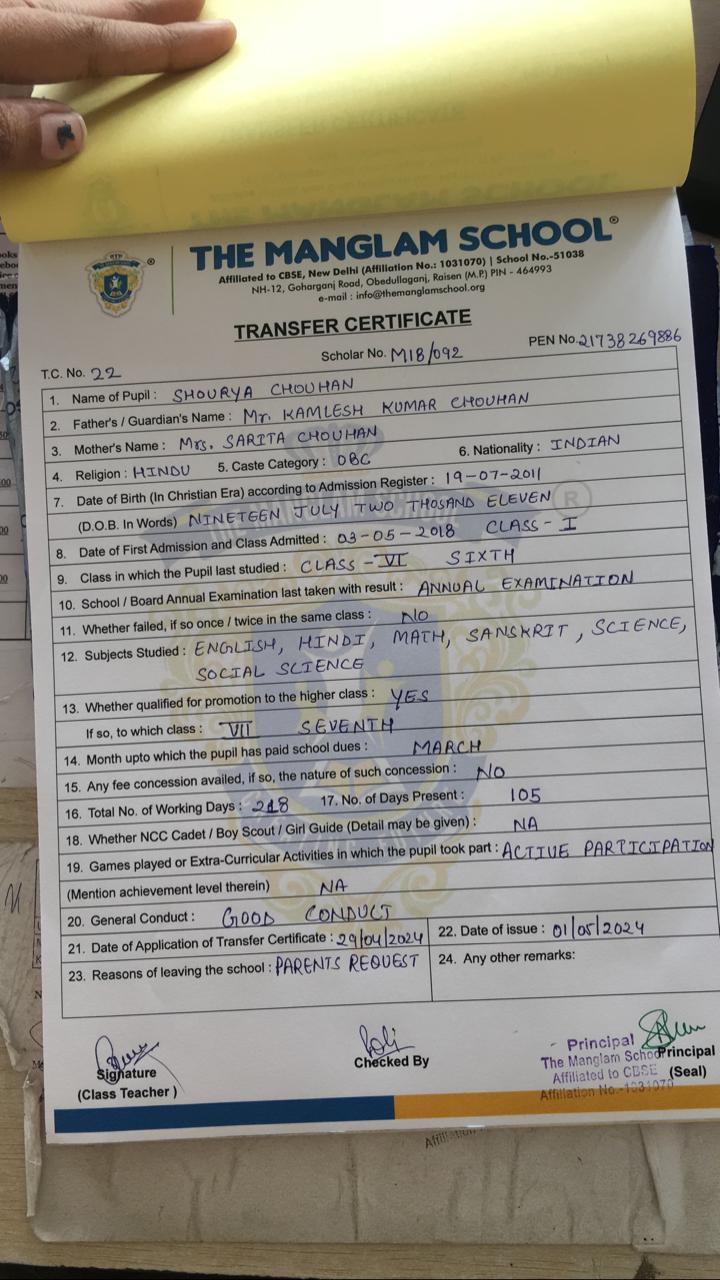 THE MANGLAM SCHOOL®
Affiliated to CBSE, New Delhi (Affiliation No.: 1031070) | School No.-51038
NH-12, Goharganj Road, Obedullaganj, Raisen (M.P.) PIN - 464993
e-mail : info@themanglamschool.org
TRANSFER CERTIFICATE
T.C. No. 22 Scholar No. M18/092 PEN No. 21738269886
1. Name of Pupil : SHOURYA CHOUHAN
2. Father's / Guardian's Name : Mr. KAMLESH KUMAR CHOUHAN
3. Mother's Name : Mrs. SARITA CHOUHAN
4. Religion : HINDU 5. Caste Category : OBC 6. Nationality : INDIAN
7. Date of Birth (In Christian Era) according to Admission Register : 19-07-2011
(D.O.B. In Words) NINETEEN JULY TWO THOSAND ELEVEN
8. Date of First Admission and Class Admitted : 03-05-2018 CLASS - I
9. Class in which the Pupil last studied : CLASS - VI SIXTH
10. School / Board Annual Examination last taken with result : ANNUAL EXAMINATION
11. Whether failed, if so once / twice in the same class : NO
12. Subjects Studied : ENGLISH, HINDI, MATH, SANSKRIT, SCIENCE,
SOCIAL SCIENCE
13. Whether qualified for promotion to the higher class : YES
If so, to which class : VII SEVENTH
14. Month upto which the pupil has paid school dues : MARCH
15. Any fee concession availed, if so, the nature of such concession : NO
16. Total No. of Working Days : 218 17. No. of Days Present : 105
18. Whether NCC Cadet / Boy Scout / Girl Guide (Detail may be given) : NA
19. Games played or Extra-Curricular Activities in which the pupil took part : ACTIVE PARTICIPATION
(Mention achievement level therein) NA
20. General Conduct : GOOD CONDUCT
21. Date of Application of Transfer Certificate : 29/04/2024 22. Date of issue : 01/05/2024
23. Reasons of leaving the school : PARENTS REQUEST 24. Any other remarks:
Signature
(Class Teacher)
Checked By
Principal
The Manglam School
Affiliated to CBSE
Affiliation No.-1031070
Principal
(Seal)